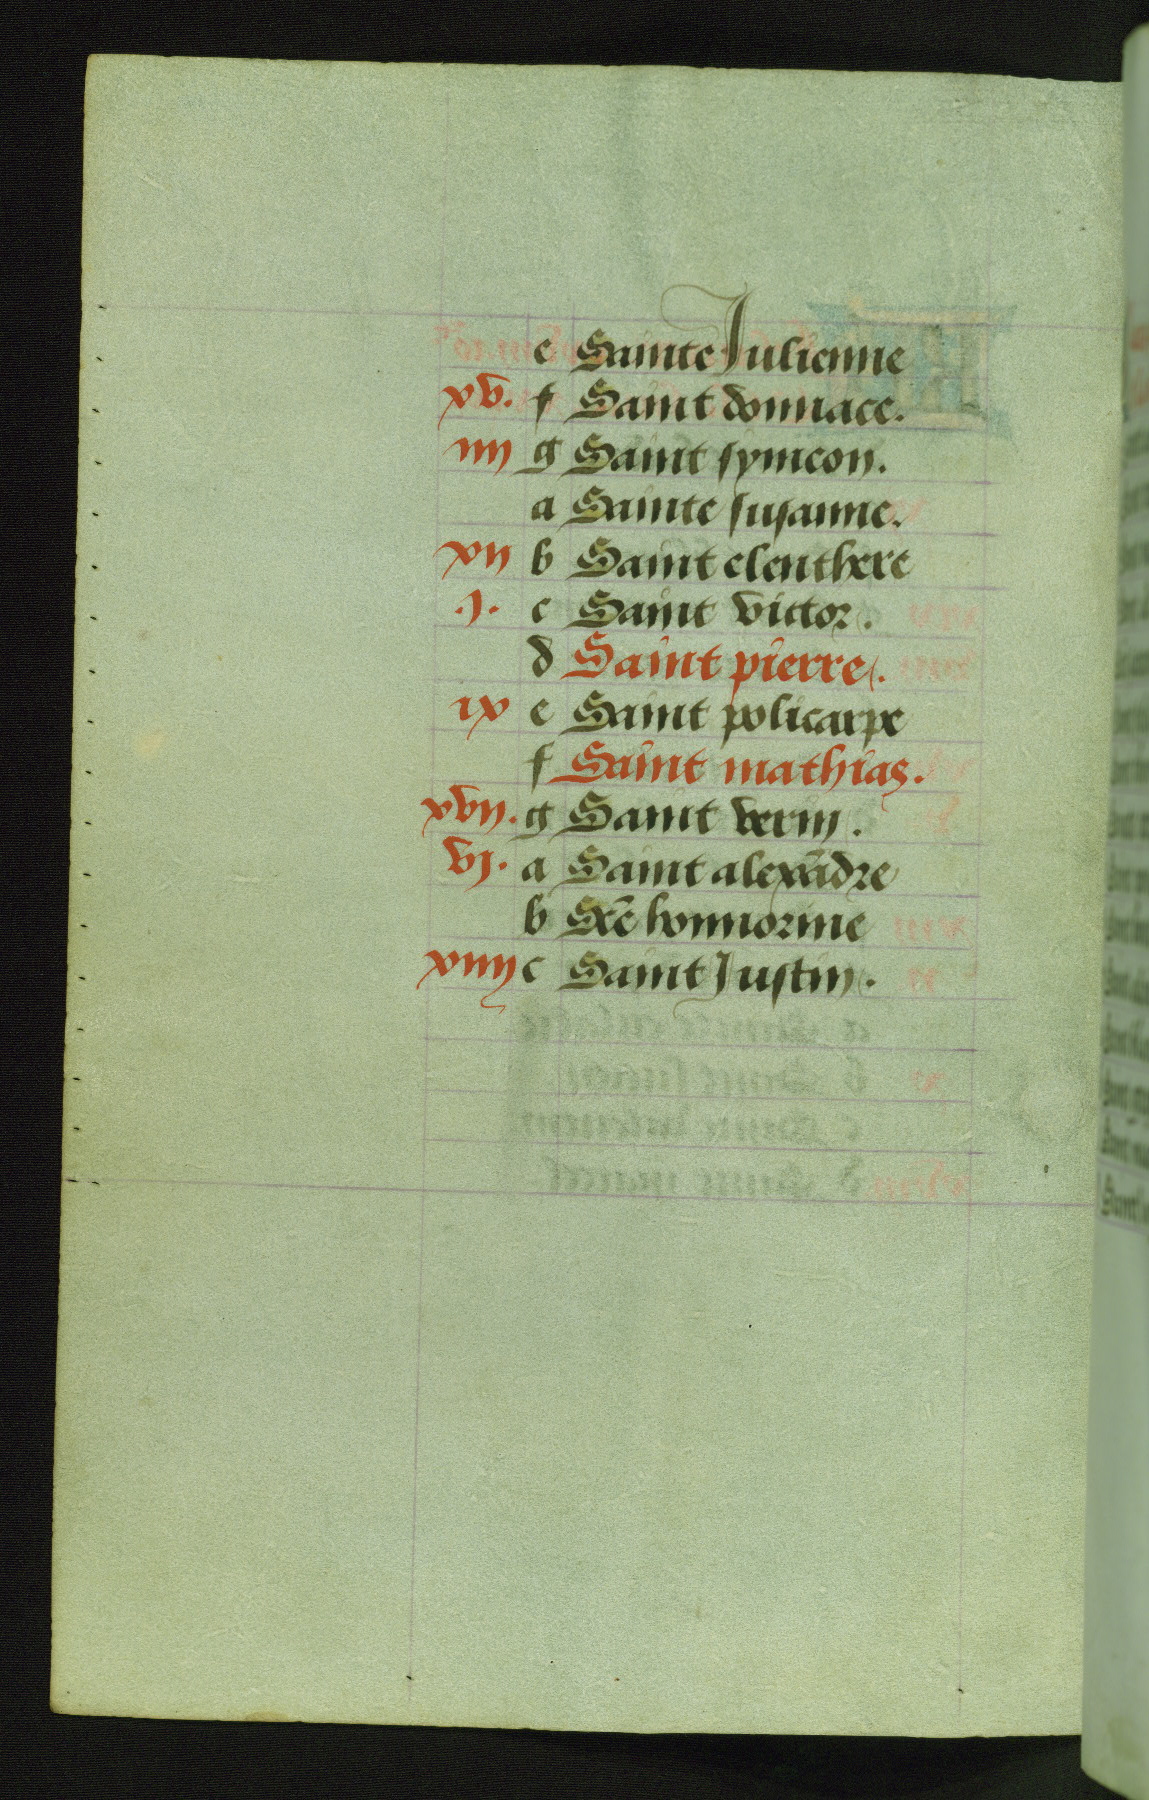 e Sainte Julienne
xv. f Saint donnace.
iiij g Saint symeon.
a Sainte susanne.
xij b Saint elenthere
.j. c Saint victor.
d Saint pierre.
ix e Saint policarpe
f Saint mathias.
xvij. g Saint verin.
vj. a Saint alexãdre
b Ste honnorine
xiiij c Saint Justin.